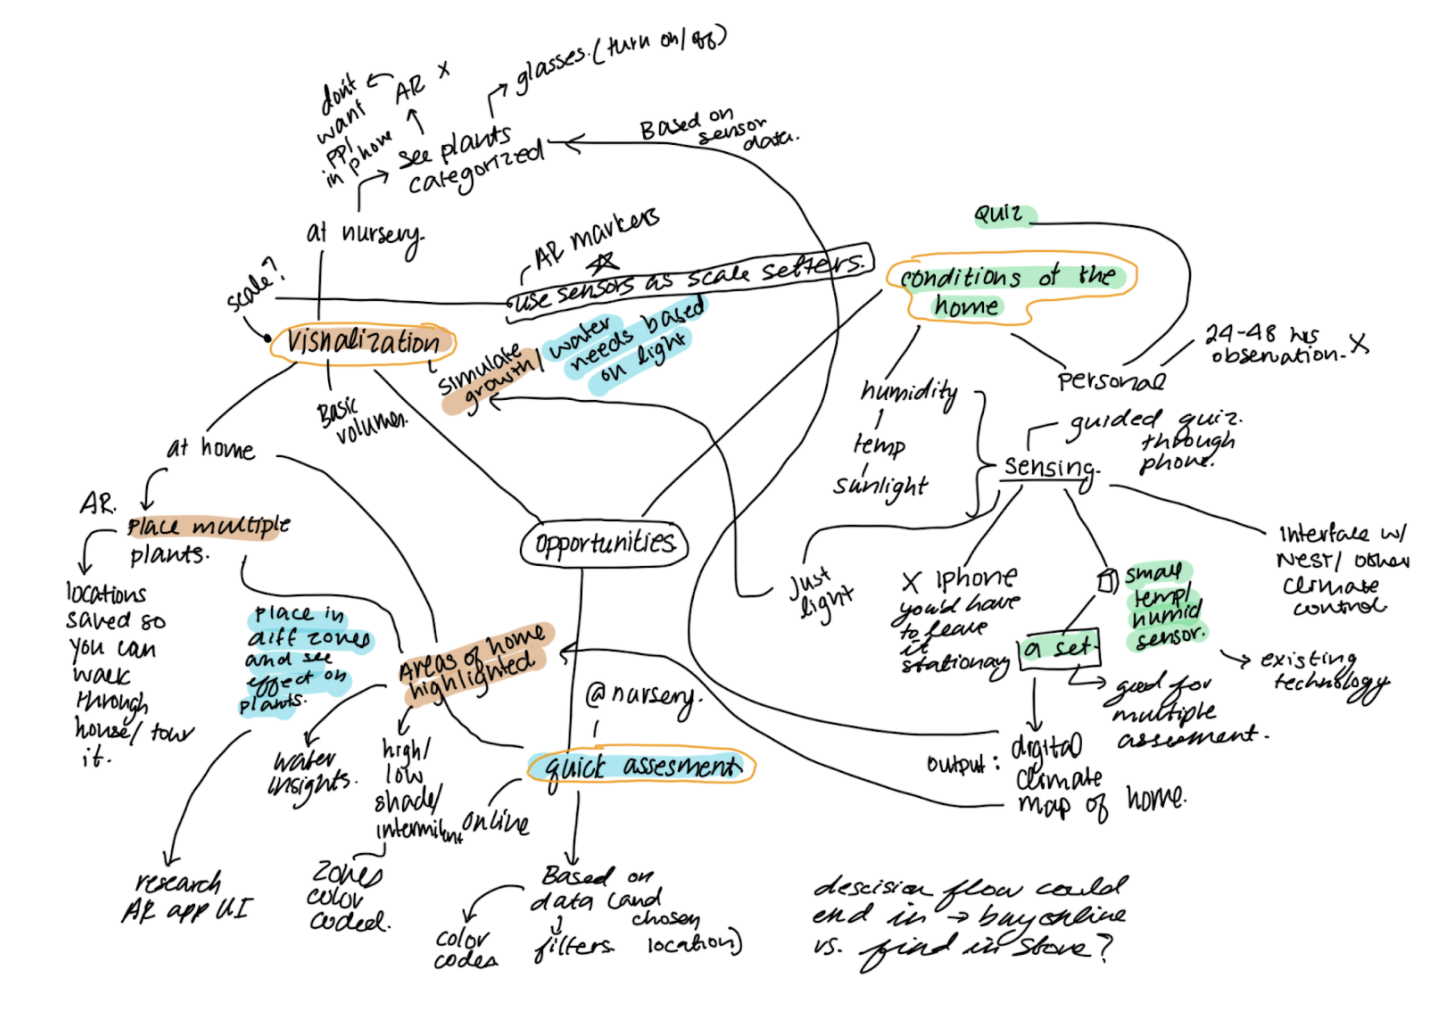 don't
want
ppl
in phone
AR X
glasses. (turn on/off)
see plants
categorized
Based on
sensor
data.
at nursery.
scale?
AR markers
use sensors as scale setters.
visnalization
Basic
volumes.
simulate
growth/
water
needs based
on light
Quiz
conditions of the
home
24-48 hrs
obsenation. X
personal
humidity
temp
sunlight
guided quiz.
through
phone.
sensing.
at home
AR.
place multiple
plants.
locations
saved so
you can
walk
through
house/tour
it.
opportunities
Just
light
X iphone
you'd have
to leave
it
stationary
small
temp/
humid
sensor.
a set.
Interface w/
NEST/other
climate
control
existing
technology
good for
multiple
assesment.
output:
digital
climate
map of home.
place in
diff zones
and see
effect on
plants.
Areas of home
highlighted
@nursery.
quick assesment
water
insights.
high/
low
shade/
online
zones
color
coded.
research
AR app UI
Based on
data (and
chosen
filters
location)
color
codes
descision flow could
end in → buy online
vs. find in store?